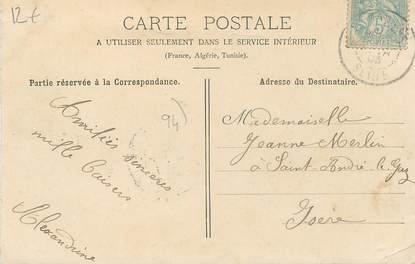 12€
CARTE POSTALE
A UTILISER SEULEMENT DANS LE SERVICE INTÉRIEUR
(France, Algérie, Tunisie).
Partie réservée à la Correspondance.
Adresse du Destinataire.
94)
Amitiés sincères
mille baisers
Alexandrine
Mademoiselle
Jeanne Merlin
à Saint-André-le-Gaz
Isère